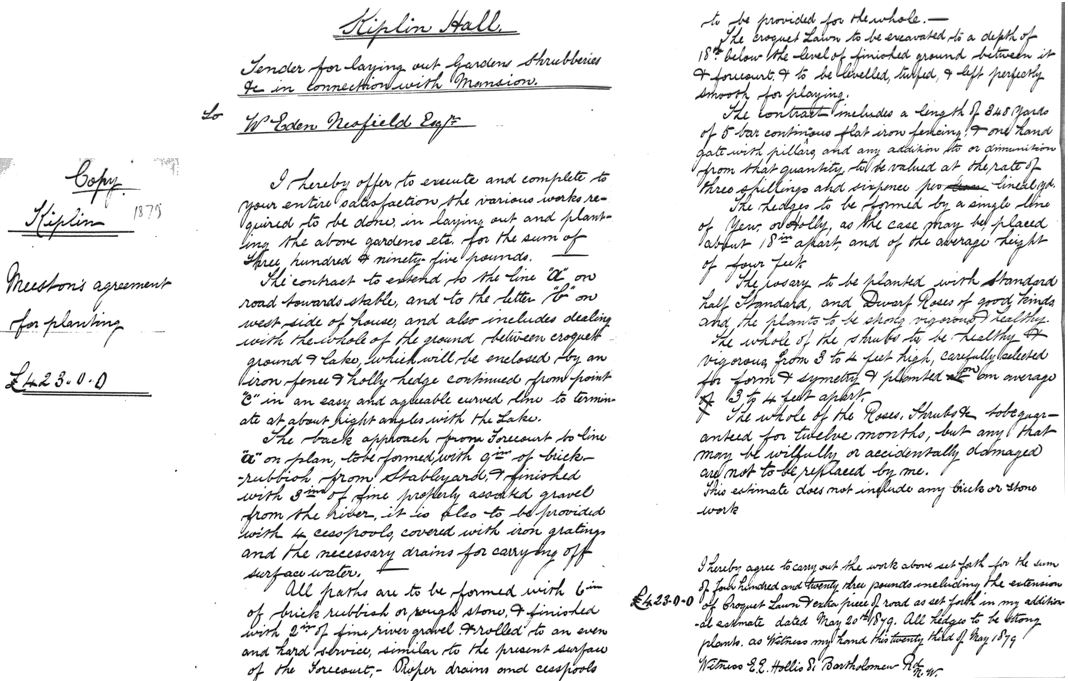 Copy.
Kiplin 1879
Meeston's agreement
for planting
£423.0.0
Kiplin Hall.
Tender for laying out Gardens Shrubberies
&c in connection with Mansion.
To
W Eden Nesfield Esqre
I hereby offer to execute and complete to
your entire satisfaction the various works re-
quired to be done, in laying out and plant-
ing the above gardens etc. for the sum of
three hundred & ninety-five pounds. —
The contract to extend to the line "a" on
road towards stable, and to the letter "b" on
west side of house, and also includes dealing
with the whole of the ground between croquet
ground & Lake, which will be enclosed by an
iron fence & holly hedge continued from point
"C" in an easy and agreeable curved line to termin-
ate at about right angles with the Lake.
The back approach from Forecourt to line
"a" on plan, to be formed with 9in of brick-
-rubbish from Stableyard, & finished
with 3in of fine properly assorted gravel
from the river, it is also to be provided
with 4 cesspools, covered with iron gratings
and the necessary drains for carrying off
surface water. —
All paths are to be formed with 6in
of brick rubbish or rough stone, & finished
with 2in of fine river gravel & rolled to an even
and hard service, similar to the present surface
of the Forecourt, - Proper drains and cesspools
to be provided for the whole. —
The croquet Lawn to be excavated to a depth of
18in below the level of finished ground between it
& forecourt, & to be levelled, turfed, & left perfectly
smooth for playing.
The contract includes a length of 348 yards
of 5 bar continous flat iron fencing & one hand
gate with pillars, and any addition to or dimunition
from that quantity, to be valued at the rate of
three shillings and sixpence per lineal yd.
The hedges to be formed by a single line
of Yew, or Holly, as the case may be, placed
about 18in apart, and of the average height
of four feet.
The rosary to be planted with Standard
half Standard, and Dwarf Roses of good kinds
and the plants to be strong vigorous & healthy.
The whole of the shrubs to be healthy &
vigorous, from 3 to 4 feet high, carefully selected
for form & symetry & planted on an average
of 3 to 4 feet apart.
The whole of the Roses, Shrubs &c to be guar-
anteed for twelve months, but any that
may be wilfully or accidentally damaged
are not to be replaced by me.
This estimate does not include any brick or stone
work
I hereby agree to carry out the work above set forth for the sum
of four hundred and twenty three pounds including the extension
£423.0.0 of Croquet Lawn & extra piece of road as set forth in my addition
-al estimate dated May 20th 1879. All hedges to be strong
plants. as Witness my hand this twenty third of May 1879
Witness E. E. Hollis St Bartholomew Rd
N.W.